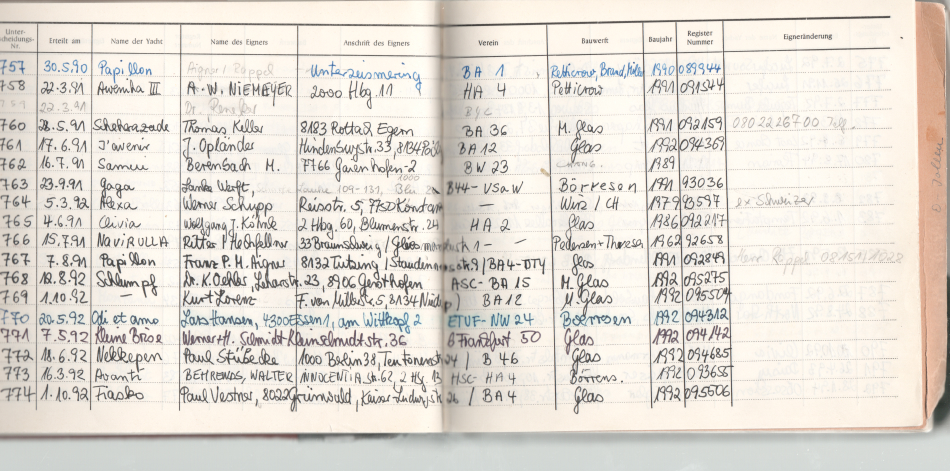 Unter-
scheidungs-
Nr. Erteilt am Name der Yacht Name des Eigners Anschrift des Eigners Verein Bauwerft Baujahr Register Nummer Eigneränderung
757 30.5.90 Papillon Aigner / Röppel Unterzeismering BA 1 Petticrow, 1990 089944
758 22.3.91 III A.-W. NIEMEYER 2000 Hbg. 11 HA 4 Petticrow 1991 091544
759 22.3.91 Dr.
760 28.5.91 Scheherazade Thomas Keller 8183 Rottach Egern BA 36 M. Glas 1991 092159
761 17.6.91 J'avenir J. Opländer Hindenburgstr. 33, 8134 BA 12 Glas 1992 094369
762 16.7.91 Samui Berenbach M. 7766 Gaienhofen-2 BW 23 1989
763 23.9.91 Gaga Werft, 109-131, Bln B44-VSaW Börresen 1991 93036
764 5.3.92 Alexa Werner Schupp Reisstr. 5, 7750 Konstanz — Wirz / CH 1979 93597 ex Schweizer
765 4.6.91 Olivia Wolfgang J. 2 Hbg. 60, Blumenstr. 24 HA 2 Glas 1986 092217
766 15.7.91 NAVIRULLA Ritter / Hochfellner 33 Braunschweig / 1 – – Pedersen + 1962 92658
767 7.8.91 Papillon Franz P. M. Aigner 8132 Tutzing / 9 / BA4-DTY Glas 1991 092849
768 12.8.92 Schlumpf Dr. K. Oehler, 23, 8906 Gersthofen ASC-BA 15 M. Glas 1992 095275
769 1.10.92 — Kurt Lorenz F. von Miller Str. 5, 8134 BA 12 M. Glas 1992 095504
770 20.5.92 Odi et amo Lars Hansen, 4300 Essen 1, am Wittkopf 2 ETUF-NW 24 Börresen 1992 094312
771 7.5.92 Kleine Brise Werner H. Schmidt Kleinschmidtstr. 36 Frankfurt 50 Glas 1992 094142
772 11.6.92 Nekkepen Paul 1000 Berlin 38, Teutonenstr. 24 / B 46 Glas 1992 094685
773 16.3.92 Avanti BEHRENDS, WALTER INNOCENTIA Str. 62, 2 Hbg. 13 HSC-HA 4 Börrens. 1992 093655
774 1.10.92 Fiasko Paul Vestner, 8022 Grünwald, Kaiser-Ludwigstr. 26 / BA 4 Glas 1992 095506